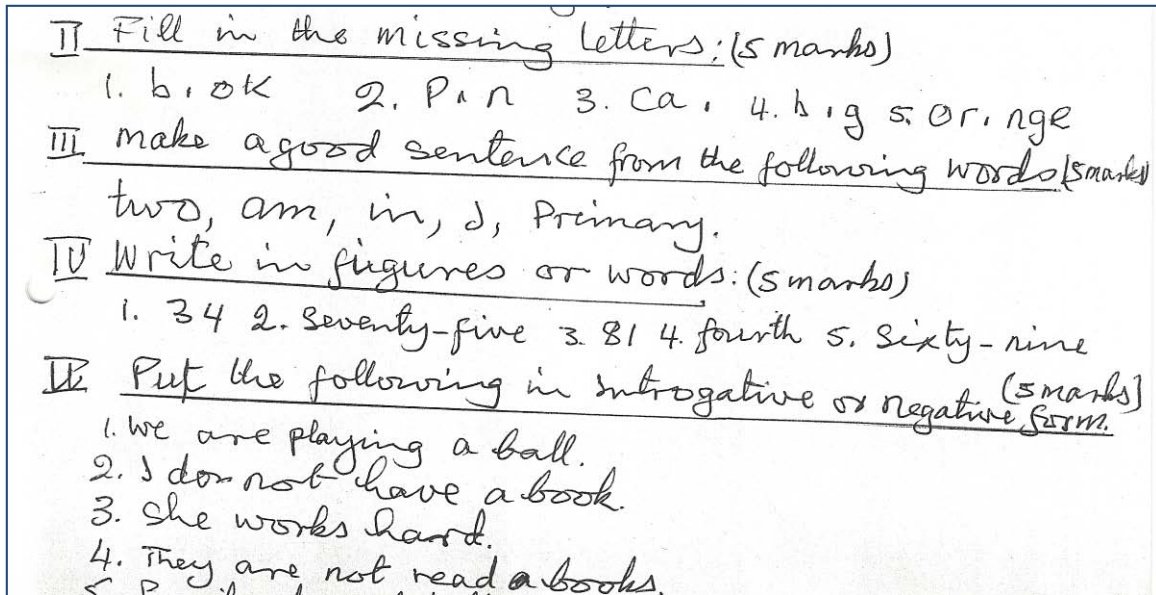 II Fill in the missing letters: (5 marks)
1. b . ok 2. P . n 3. Ca . 4. b . g 5. Or . nge
III make a good sentence from the following words (5 marks)
two, am, in, I, Preimary.
IV Write in figures or words: (5 marks)
1. 34 2. Seventy-five 3. 81 4. fourth 5. Sixty-nine
Put the following in introgative or negative form. (5 marks)
1. We are playing a ball.
2. I do not have a book.
3. She works hard.
4. They are not read a books.